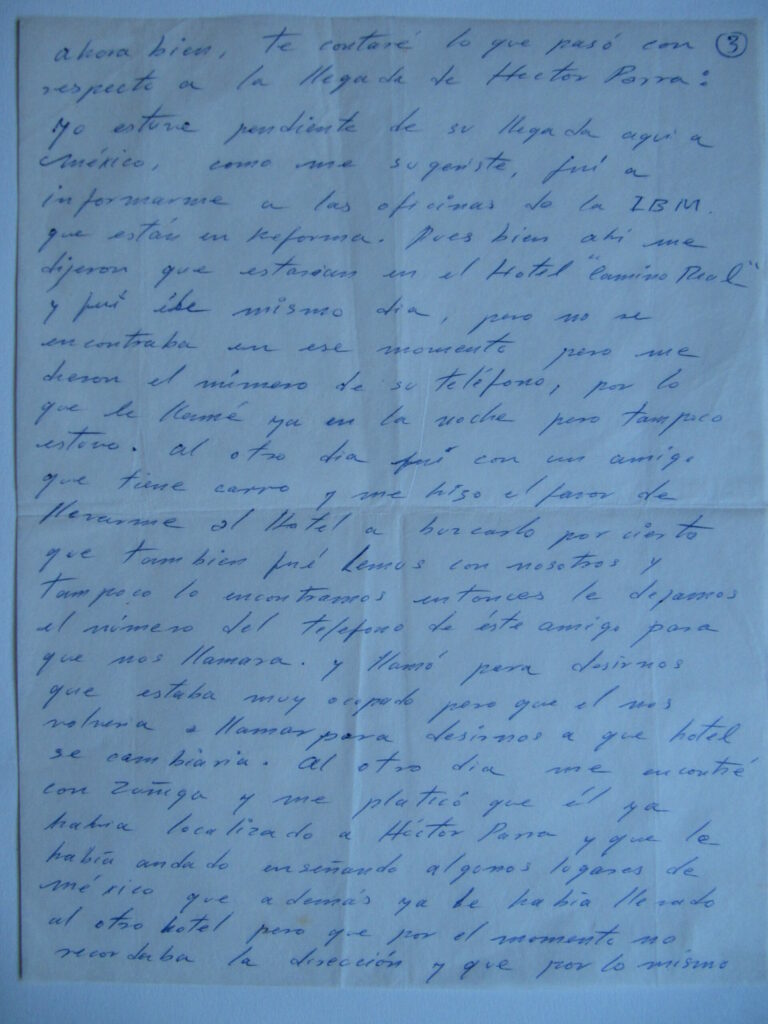 ahora bien, te contaré lo que pasó con ③
respecto a la llegada de Hector Parra:
yo estuve pendiente de su llegada aqui a
México, como me sugeriste, fuí a
informarme a las oficinas de la IBM.
que están en Reforma. Pues bien ahi me
dijeron que estarian en el Hotel "Camino Real"
y fuí ése mismo dia, pero no se
encontraba en ese momento pero me
dieron el número de su teléfono, por lo
que le llamé ya en la noche pero tampoco
estuvo. al otro dia fuí con un amigo
que tiene carro y me hiso el favor de
llevarme al Hotel a buscarlo por cierto
que tambien fué Lemus con nosotros y
tampoco lo encontramos entonces le dejamos
el número del telefono de éste amigo para
que nos llamara. y llamó para desirnos
que estaba muy ocupado pero que el nos
volveria a llamar para desirnos a que hotel
se cambiaria. Al otro dia me encontré
con Zuñiga y me platicó que él ya
habia localizado a Héctor Parra y que le
había andado enseñando algunos lugares de
México que además ya le había llevado
al otro hotel pero que por el momento no
recordaba la dirección y que por lo mismo